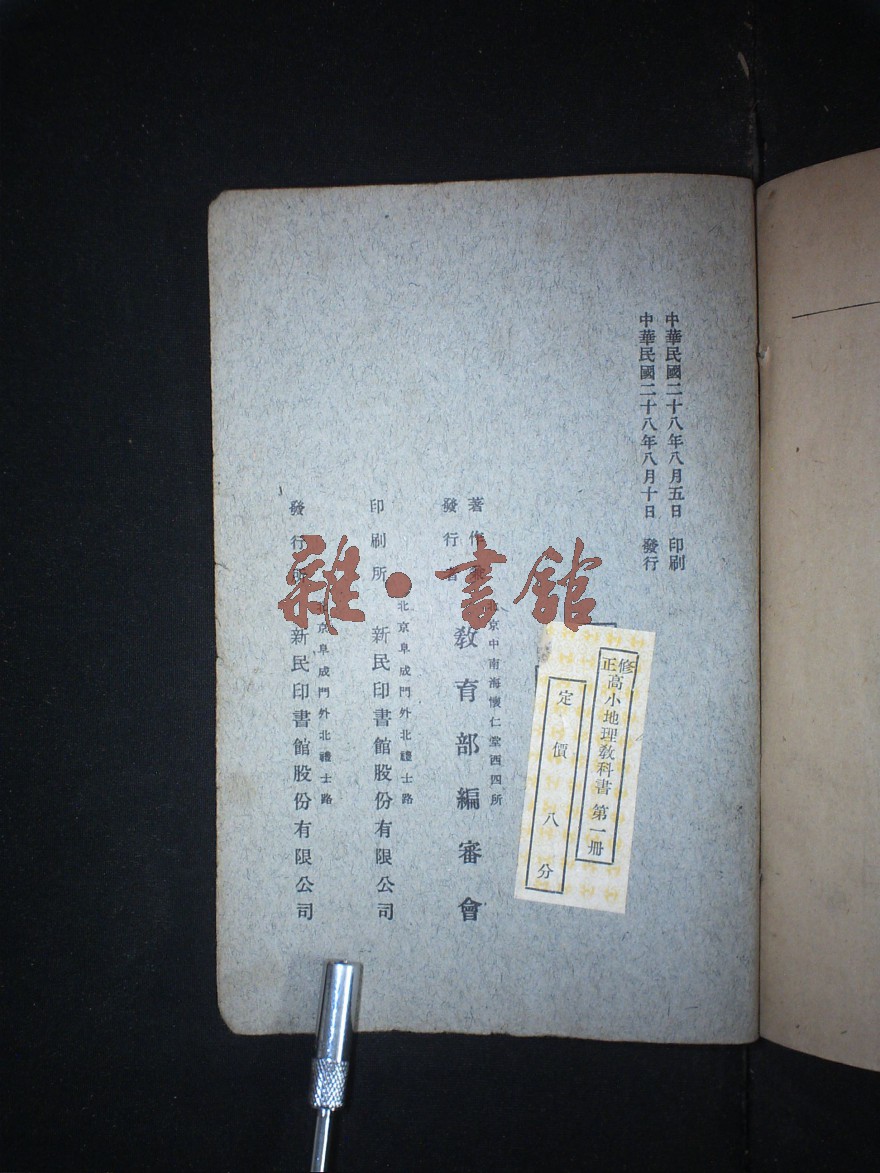 中華民國二十八年八月五日　印刷
中華民國二十八年八月十日　發行
修正高小地理教科書 第一冊
定價八分
北京中南海懷仁堂西四所
著作兼
發行者
教育部編審會
北京阜成門外北禮士路
印刷所
新民印書館股份有限公司
北京阜成門外北禮士路
發行所
新民印書館股份有限公司
雜·書館